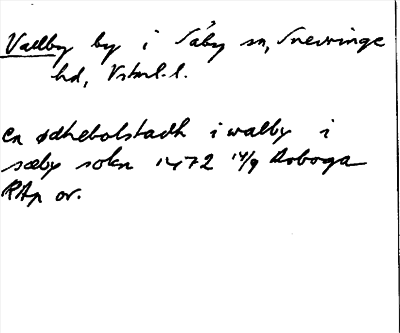 Vallby by i Säby sn, Snevringe
hd, Vstml. l.
en ødhebolstadh i walby i
sæby sokn 1472 14/9 Arboga
RAp or.